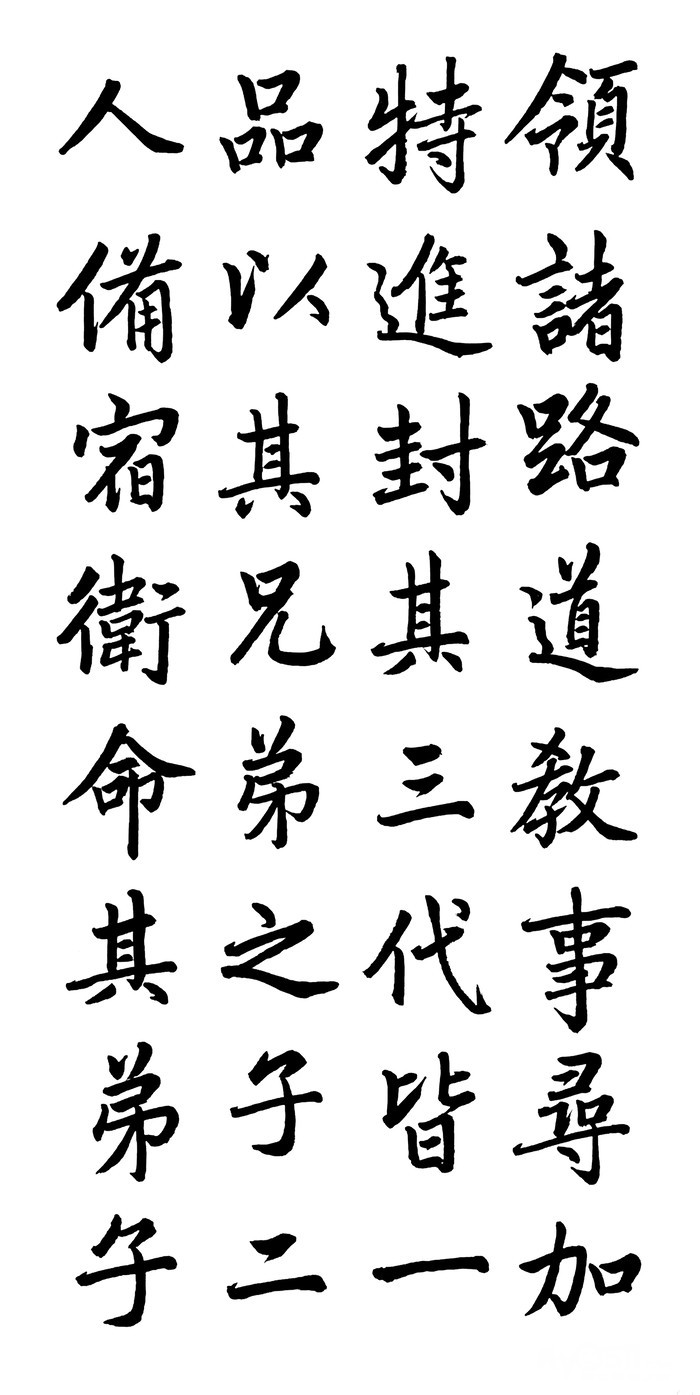 領諸路道教事尋加
特進封其三代皆一
品以其兄弟之子二
人備宿衛命其弟子